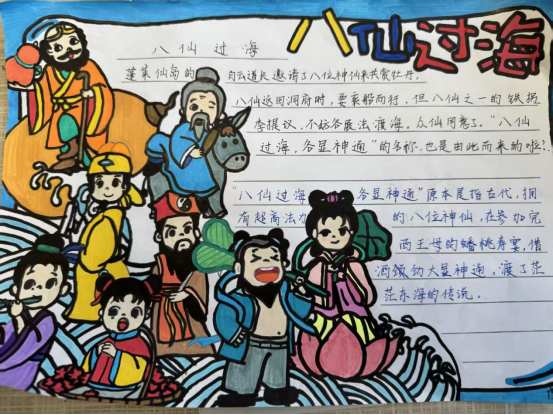 八仙过海
八仙过海
蓬莱仙岛的白云道长邀请了八位神仙来共赏牡丹,
八仙返回洞府时,要乘船而行,但八仙之一的铁拐
李提议,不妨各展法渡海,众仙同意了。"八仙
过海,各显神通"的名称,也是由此而来的啦!
"八仙过海 各显神通"原本是指古代,拥
有超高法力的八位神仙,在参加完
西王母的蟠桃寿宴,借
酒镇幼大显神通,渡了茫
茫东海的传说。